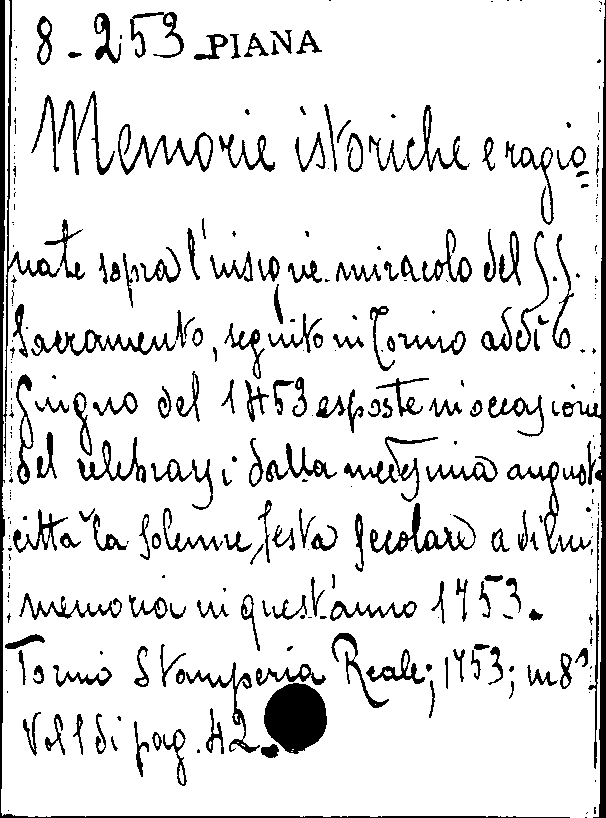 8-253-PIANA
Memorie istoriche e ragio=
nate sopra l'insigne miracolo del S.S.
Sacramento, seguito in Torino addì 6
Giugno del 1453 esposte in occasione
del celebrarsi dalla medesima august
città la solenne festa secolare a di lui
memoria in quest'anno 1753.
Torino Stamperia Reale; 1753; in 8º
Vol 1 di pag. 42